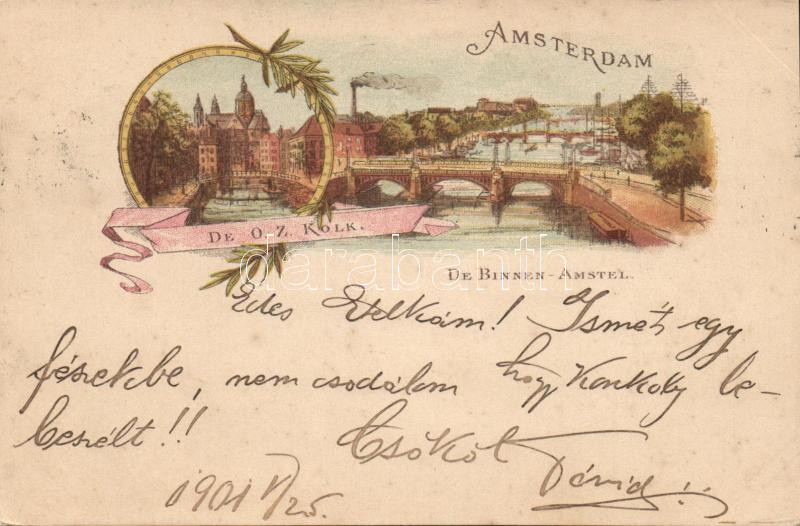 AMSTERDAM
DE O. Z. KOLK.
darabanth
DE BINNEN-AMSTEL.
Édes Etelkám! Ismét egy
fészekbe, nem csodálom hogy Konkoly le-
beszélt!! Csókol
Dávid!!
1901 V/25.